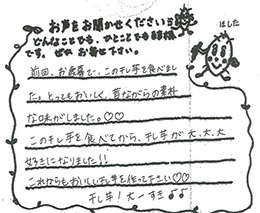 お声をお聞かせください
どんなことでも、ひとことでも結構
です。ぜひ お寄せ下さい。
はした
前回、お歳暮で、このほし芋を食べまし
た。とってもおいしく、昔ながらの素朴
な味がしました。♡♡
このほし芋を食べてから、ほし芋が大、大、大
好きになりました!!
これからもおいしいほし芋を作って下さい♡♡
ほし芋!大ーすき♪♪